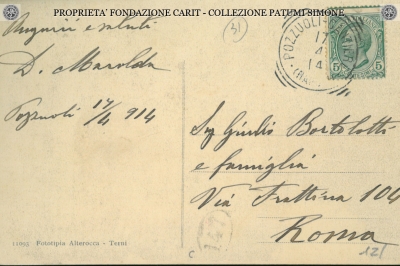 PROPRIETA' FONDAZIONE CARIT - COLLEZIONE PATUMI SIMONE
31
Auguri e saluti
D. Marolda
Pozzuoli 17/4 914
POZZUOLI
17
4
14
5 5
Sg Giulio Bortolotti
e famiglia
Via Frattina 104
Roma
11095 Fototipia Alterocca - Terni
147
C
12/